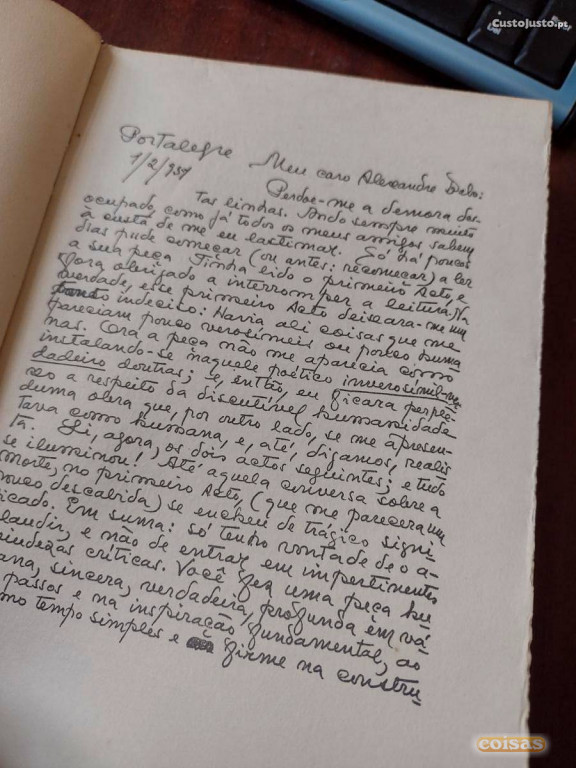 CustoJusto.pt
Del
Portalegre Meu caro Alexandre Babo:
1/2/957
Perdoe-me a demora des-
tas linhas. Ando sempre muito
ocupado, como já todos os meus amigos sabem
à custa de me eu lastimar. Só há poucos
dias pude começar (ou antes: recomeçar) a ler
a sua peça. Tinha lido o primeiro Acto, e
fora obrigado a interromper a leitura. Na
verdade, este primeiro Acto deixara-me um
tanto indeciso: Havia ali coisas que me
pareciam pouco verosímeis ou pouco huma
nas. Ora a peça não me aparecia como
instalando-se naquele poético inverosímil-ver
dadeiro doutras; e, então, eu ficara perple-
xo a respeito da discutível humanidade
duma obra que, por outro lado, se me apresen-
tava como humana, e, até, digamos, realis
ta. Li, agora, os dois actos seguintes; e tudo
se iluminou! Até aquela conversa sobre a
morte, no primeiro Acto, (que me parecera um
pouco descabida) se encheu de trágico signi
ficado. Em suma: só tenho vontade de o a-
plaudir, e não de entrar em impertinentes
miudezas críticas. Você fez uma peça hu
mana, sincera, verdadeira, profunda em vá
passos e na inspiração fundamental, ao
mo tempo simples e firme na constru
coisas